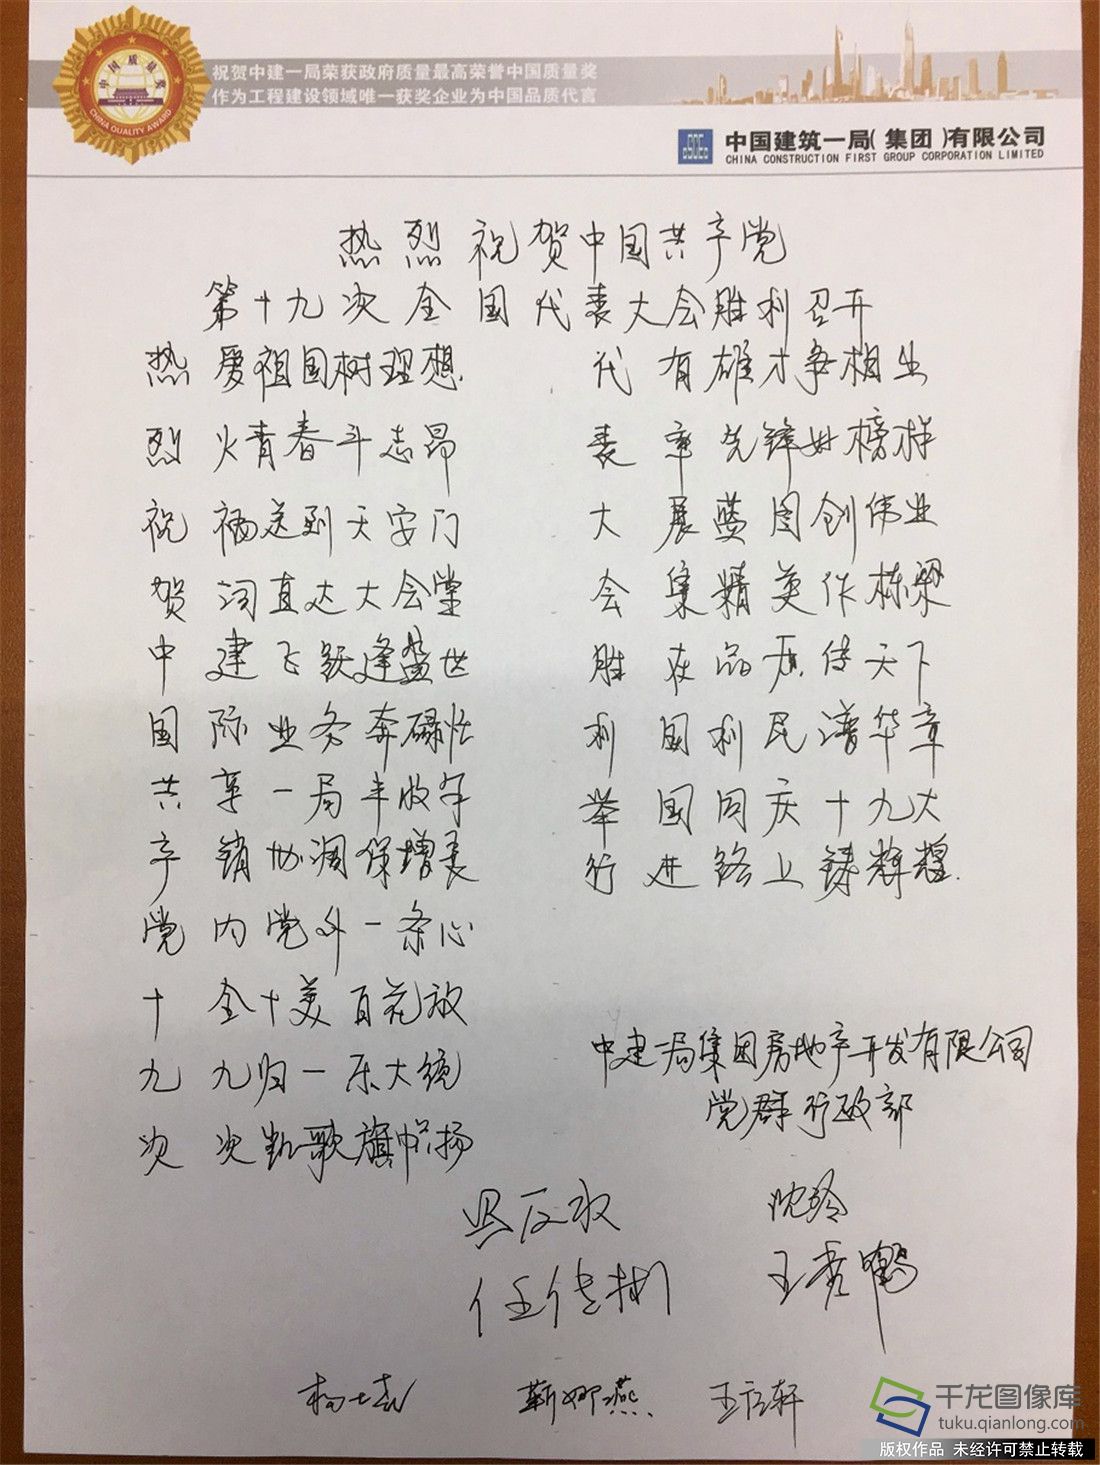 中国质量奖
CHINA QUALITY AWARD
祝贺中建一局荣获政府质量最高荣誉中国质量奖
作为工程建设领域唯一获奖企业为中国品质代言
中国建筑一局(集团)有限公司
CHINA CONSTRUCTION FIRST GROUP CORPORATION LIMITED
热烈祝贺中国共产党
第十九次全国代表大会胜利召开
热爱祖国树理想
烈火青春斗志昂
祝福送到天安门
贺词直达大会堂
中建飞跃逢盛世
国际业务奔碌忙
共享一局丰收年
产销协调保增长
党内党外一条心
十全十美百花放
九九归一乐大统
次次凯歌旗帜扬
代有雄才争相出
表率先锋好榜样
大展蓝图创伟业
会集精英作栋梁
胜在品质传天下
利国利民谱华章
举国同庆十九大
行进路上铸辉煌.
中建一局集团房地产开发有限公司
党群行政部
沈玲
王秀鹤
靳娜燕
千龙图像库
tuku.qianlong.com
版权作品 未经许可禁止转载